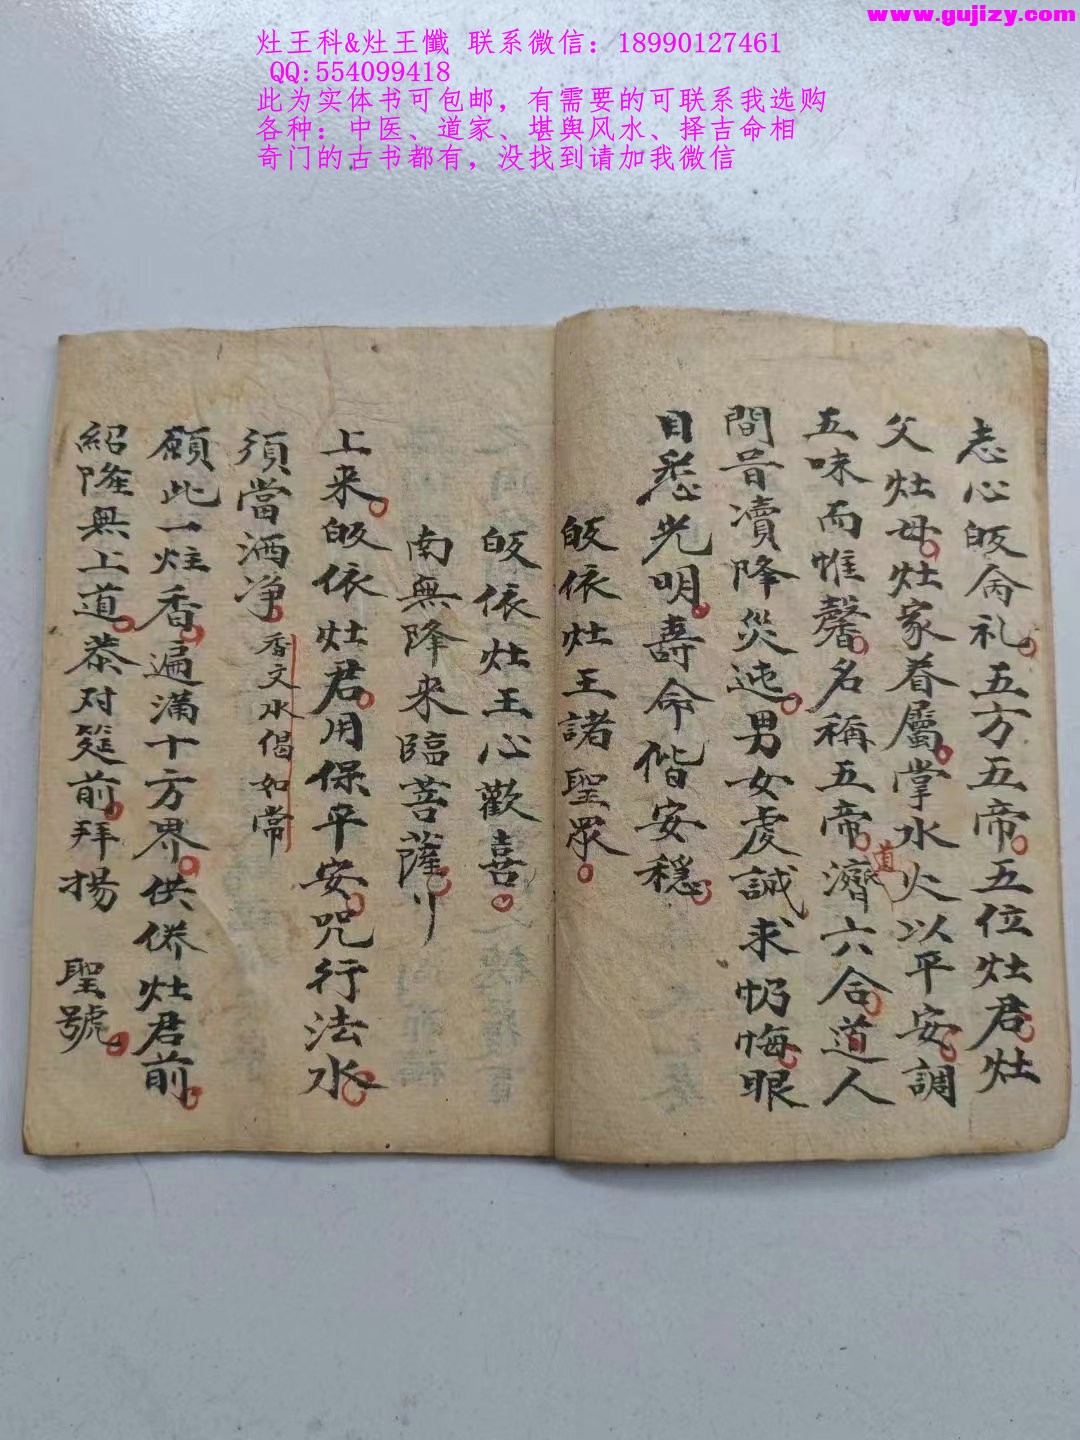 www.gujizy.com
灶王科&灶王懺 联系微信：18990127461
QQ:554099418
此为实体书可包邮，有需要的可联系我选购
各种：中医、道家、堪舆风水、择吉命相
奇门的古书都有，没找到请加我微信
志心皈命礼五方五帝五位灶君灶
父灶母灶家眷屬掌水火以平安調
五味而惟馨名稱五帝濟六合道人
直
間音瀆降災迍男女虔誠求忏悔眼
目悉光明壽命偕安穩
皈依灶王諸聖眾
皈依灶王心歡喜
南無降来臨菩薩
上来皈依灶君用保平安咒行法水
須當洒净香文水偈如常
願此一炷香遍滿十方界供养灶君前
紹隆無上道恭对筵前拜揚 聖號